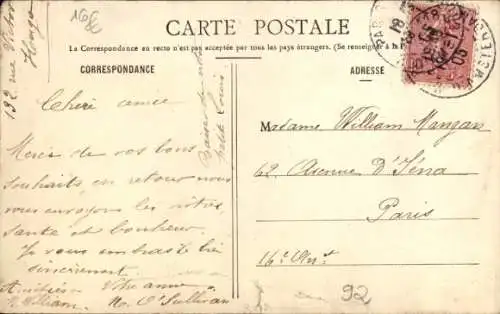 16€
132 rue Victor
Hugo
CARTE POSTALE
La Correspondance au recto n'est pas acceptée par tous les pays étrangers. (Se renseigner à la
CORRESPONDANCE
ADRESSE
Chère amie
Merci de vos bons
souhaits en retour nous
vous envoyons les nôtres,
santé et bonheur.
Je vous embrasse bien
sincèrement.
Votre amie
M. O'Sullivan
Amitiés
William
Baiser de votre
petit Louis
Madame William Mangan
62 Avenue D'Iéna
Paris
16e Arrt
92